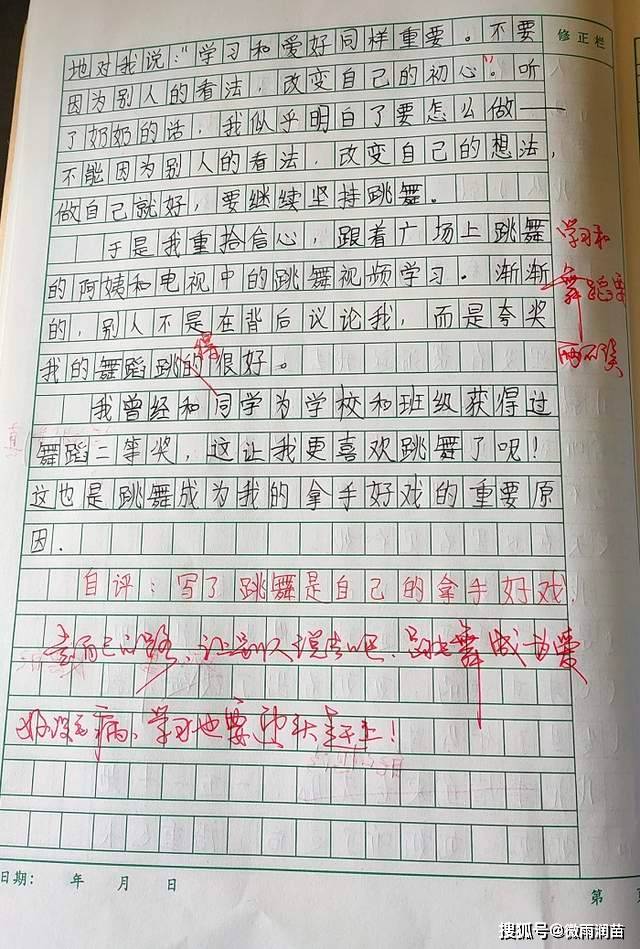 修正栏
地对我说:“学习和爱好同样重要。不要
因为别人的看法,改变自己的初心”。听
了奶奶的话,我似乎明白了要怎么做——
不能因为别人的看法,改变自己的想法,
做自己就好,要继续坚持跳舞。
于是我重拾信心,跟着广场上跳舞
的阿姨和电视中的跳舞视频学习。渐渐
的,别人不是在背后议论我,而是夸奖
得
我的舞蹈跳的很好。
学习和
舞蹈要
两不误
我曾经和同学为学校和班级获得过
舞蹈二等奖,这让我更喜欢跳舞了呢!
这也是跳舞成为我的拿手好戏的重要原
因.
自评:写了跳舞是自己的拿手好戏.
走自己的路,让别人说去吧,跳舞成为爱
好没毛病,学习也要迎头赶上!
日期: 年 月 日
第 页
搜狐号@微雨润苗